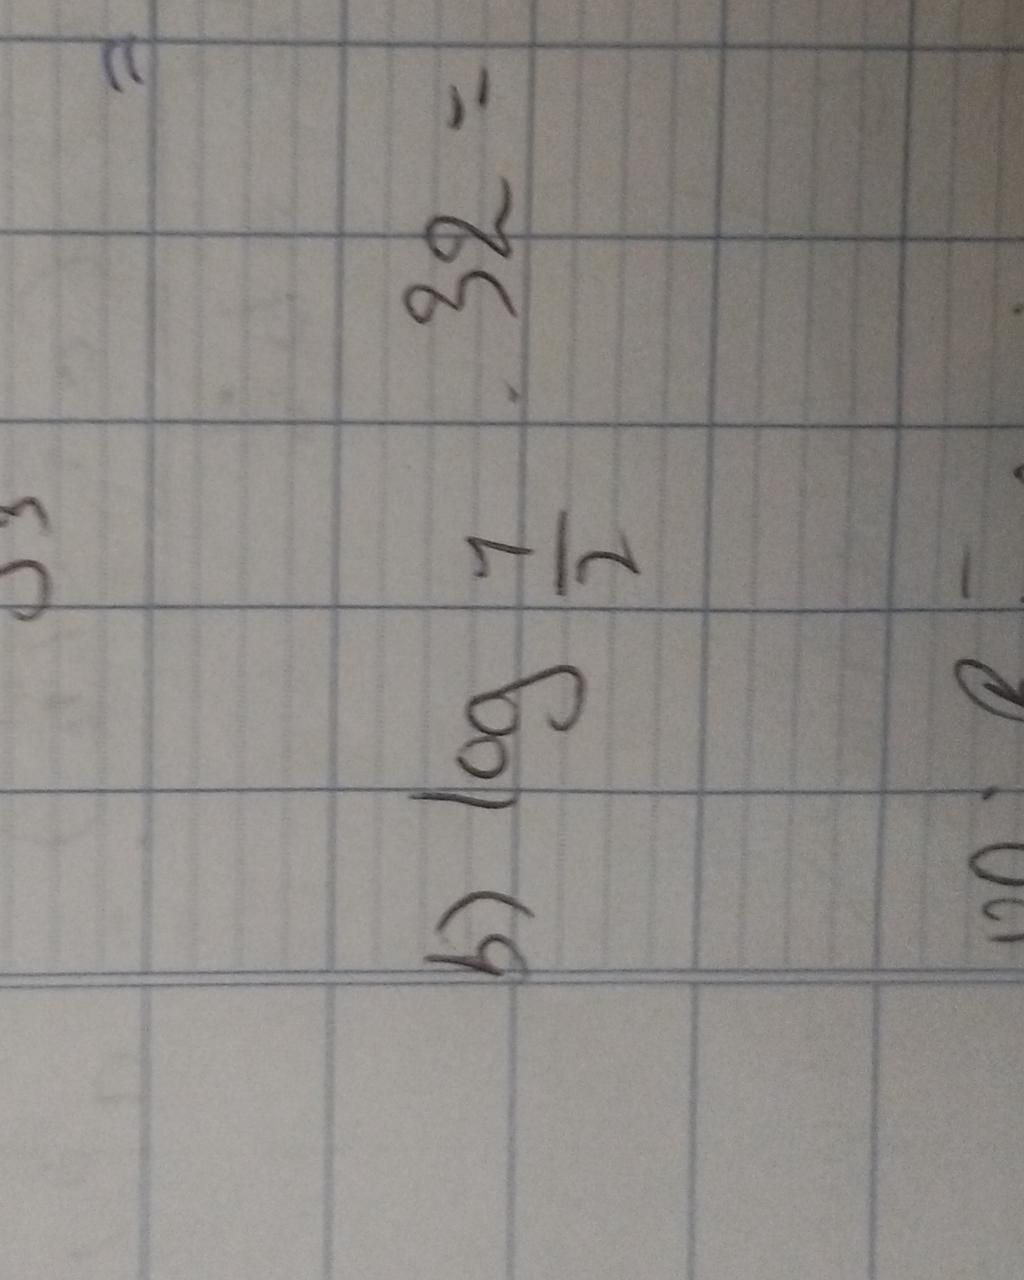 =
b) log 1/2 . 32 =